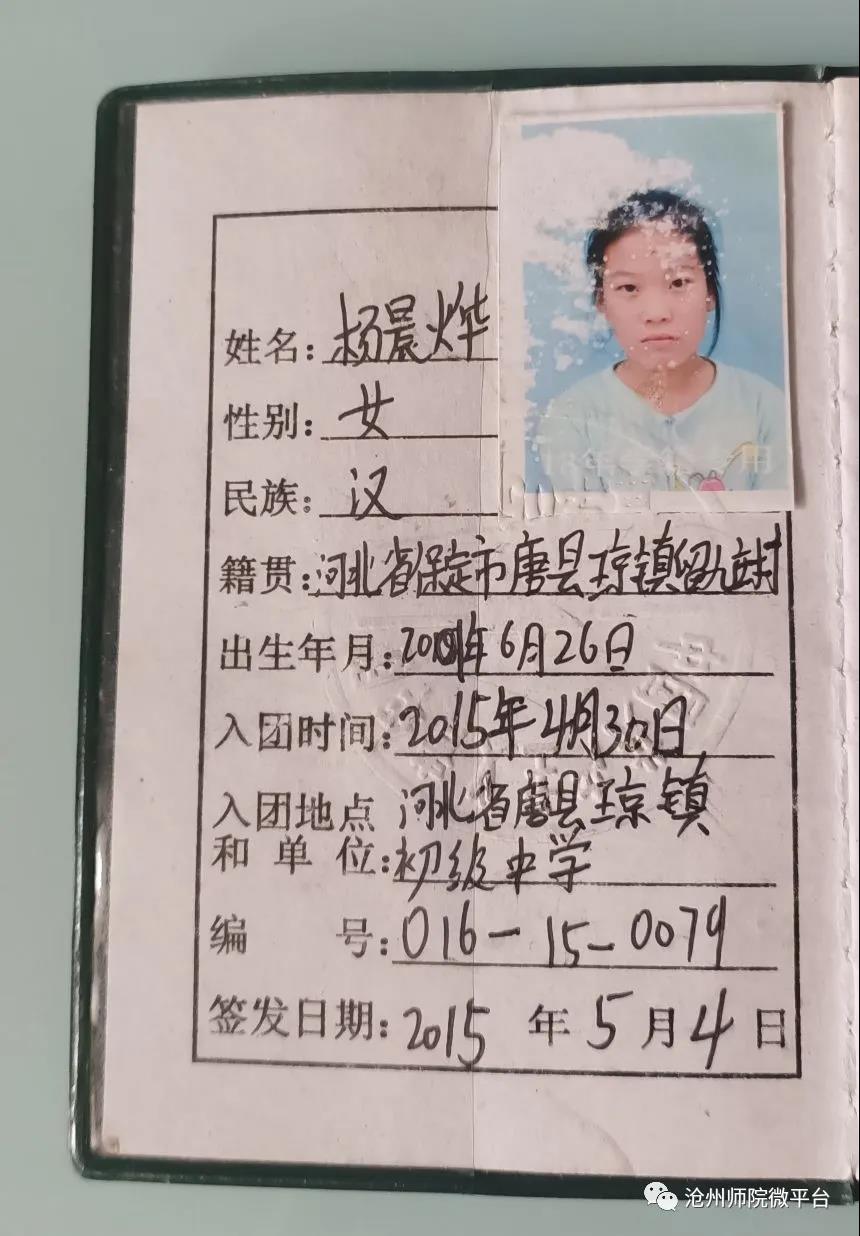 姓名：杨晨烨
性别：女
民族：汉
籍贯：河北省保定市唐县琼镇留九立村
出生年月：2001年6月26日
入团时间：2015年4月30日
入团地点 河北省唐县琼镇
和单位：初级中学
编号：016-15-0079
签发日期：2015年5月4日
沧州师院微平台